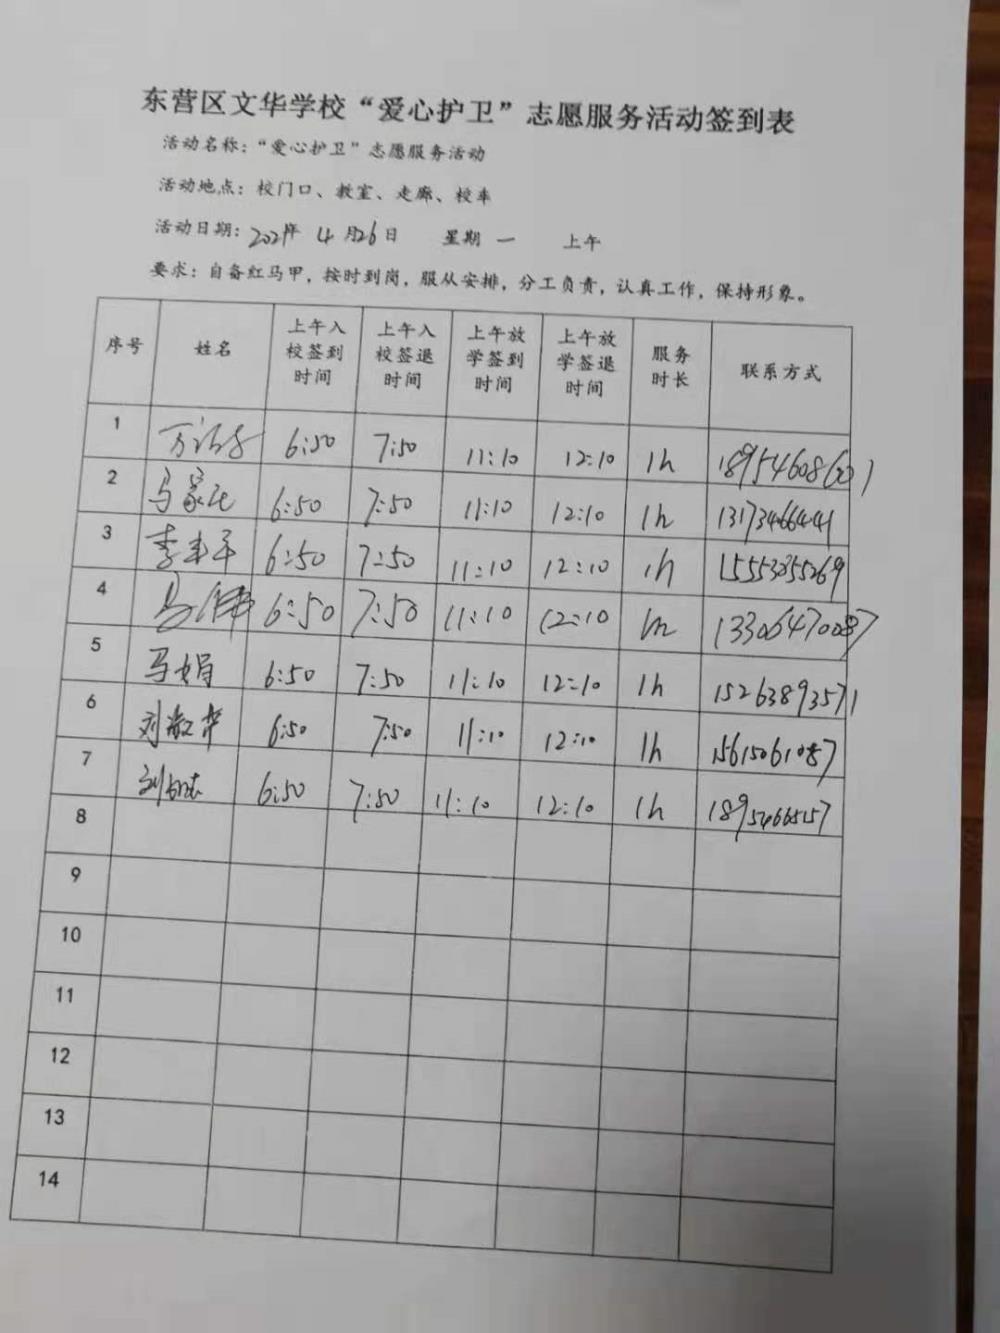 东营区文华学校“爱心护卫”志愿服务活动签到表
活动名称：“爱心护卫”志愿服务活动
活动地点：校门口、教室、走廊、校车
活动日期：2021年 4月26日 星期 一 上午
要求：自备红马甲，按时到岗，服从安排，分工负责，认真工作，保持形象。
序号 姓名 上午入校签到时间 上午入校签退时间 上午放学签到时间 上午放学签退时间 服务时长 联系方式
1 6:50 7:50 11:10 12:10 1h 18954608601
2 6:50 7:50 11:10 12:10 1h 13173466441
3 6:50 7:50 11:10 12:10 1h
4 6:50 7:50 11:10 12:10 1h 13306470087
5 马娟 6:50 7:50 11:10 12:10 1h 15263893571
6 6:50 7:50 11:10 12:10 1h 15615061087
7 6:50 7:50 11:10 12:10 1h
8
9
10
11
12
13
14